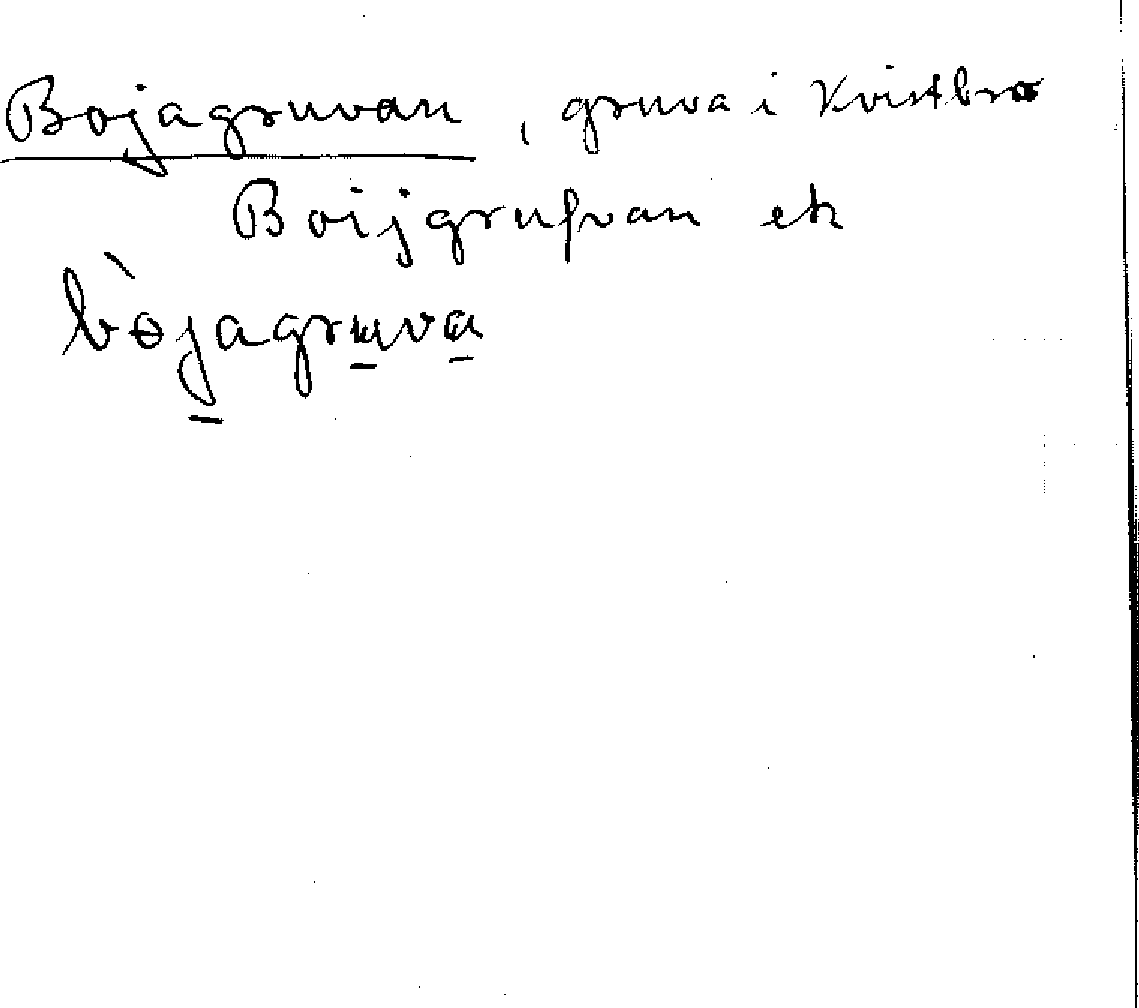 Bojagruvan, gruva i Kvistbro
Boijgrufvan ek
bòjagruva